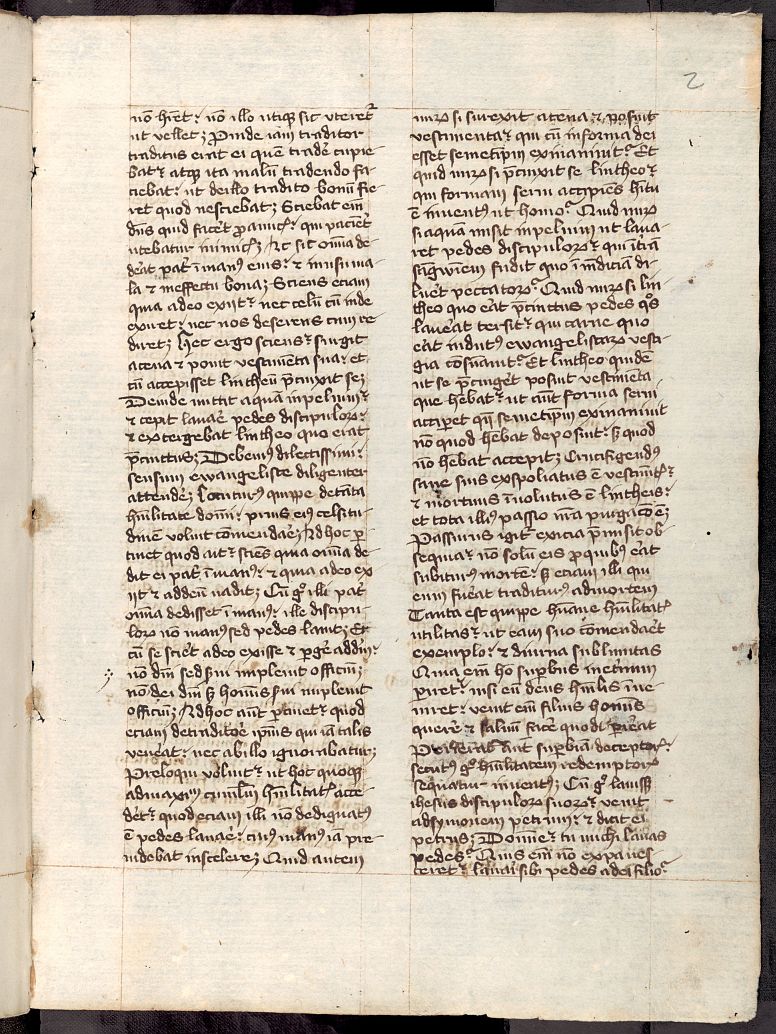 2
nō hiret: nō illo utiqꝫ sic uteret᷑
ut vellet; Proinde iam traditor
traditus erat ei quē tradē cupie
bat: atqꝫ ita malū tradendo fa
ciebat: ut de illo tradito bonū fie
ret quod nesciebat; Sciebat em̄
dn̄s quid facet᷑ pro amicꝭ: qui pacient᷑
utebatur inimicꝭ; Ac sic om̄ia de
dēat pat᷑ ī manꝰ eius: ⁊ in usū ma
la ⁊ in effectū bona; Sciens eciam
quia a deo exiit: nec celū cū inde
exiret: nec nos deserens cum re
diret; Hec ergo sciens: surgit
a cena ⁊ ponit vestimēta sua: et
cū accepisset lintheū p̄cinxit se;
Deinde mittit aquā in peluim:
⁊ cepit lavaē pedes discipuloꝝ:
⁊ extergebat lintheo quo erat
p̄cinctus; Debemꝰ dilectissimi:
sensum ewangeliste diligenter
attendē; Locuturꝰ quippe de tāta
hūilitate domī: prius eiꝰ celsitu
dinem voluit cōmendaē; Ad hoc ꝑ
tinet quod ait: sciēs quia om̄ia de
dit ei pat᷑ ī manꝰ: ⁊ quia a deo ex
iit ⁊ ad deū vadit; Cū gͦ illi pat᷑
om̄ia dedisset ī manꝰ: ille discipu
loꝝ nō manꝰ sed pedes lauit; Et
cū se sciret᷑ a deo exisse ⁊ ꝑgē ad dm̄:
nō dm̄ sed ẜui impleuit officiū;
nō dei dm̄ ẜꝫ hoīnis ẜui impleuit
officiū; Ad hoc aūt ꝑtinet: quod
eciam de traditoē ip̄ius qui iā talis
venerat: nec ab illo ignorabatur;
Preloqui voluit: ut hoc quoqꝫ
ad maximū cumulū hūilitatꝭ acce
dēt: quod eciam illi nō dedignatꝰ
ē pedes lavaē: cuiꝰ manꝰ iā pre
uidebat in scelere; Quid autem
miꝝ si surexit a cena: ⁊ posuit
vestimenta: qui cū in forma dei
esset semetip̄m exinaniuit: Et
quid miꝝ si p̄cinxit se lintheo:
qui formam serui accipiēs hītu
ē inventꝰ ut homo: Quid miꝝ
si aquā misit in peluim ut lava
ret pedes discipuloꝝ: qui ī t̄rā
sāgwinem fudit quo īmūdiciā di
luēt peccatoꝝ: Quid miꝝ si lin
theo quo erat p̄cinctus pedes qͦs
lauēat tersit: qui carne quo
erat indutꝰ ewangelistaꝝ vesti
gia cōfirmauit: Et lintheo quidē
ut se p̄cingēt posuit vestimēta
que hēbat: ut aūt forma serui
acciꝑet qn̄ semetip̄m exinaniuit
nō quod hēbat deposuit: ẜꝫ quod
nō hēbat accepit; Crucifigendus
sane suis expoliatus ē vestimētꝭ:
⁊ mortuus īuolutus ē lintheis:
et tota illiꝰ passio nr̄a purgacō ē;
Passurus igit᷑ exicia p̄misit ob
sequia: nō solū eis pro quibꝰ erat
subiturus mortē: ẜꝫ eciam illi qui
eum fuerat traditurꝰ ad mortem
Tanta est quippe humane hūilitatꝭ
utilitas: ut eam suo cōmendaēt
exemplo: ⁊ diuina sublimitas
Quia em̄ hō suꝑbus in et̄num
ꝑiret: nisi eū deus hūilis īue
niret: venit em̄ filius hoīnis
querē ⁊ saluū facē quod ꝑierat
Perierat aūt suꝑbiā deceptoꝝ:
secutꝰ gͦ hūilitatem redemptoꝝ
sequatur inventꝰ; Cū gͦ lauisset
ihesus discipuloꝝ suoꝝ: venit
ad symonem petrum: ⁊ dicit ei
petrus; Domine: tu michi lauas
pedes: Quis em̄ nō expaues
ceret: lauai sibi pedes a dei filio: